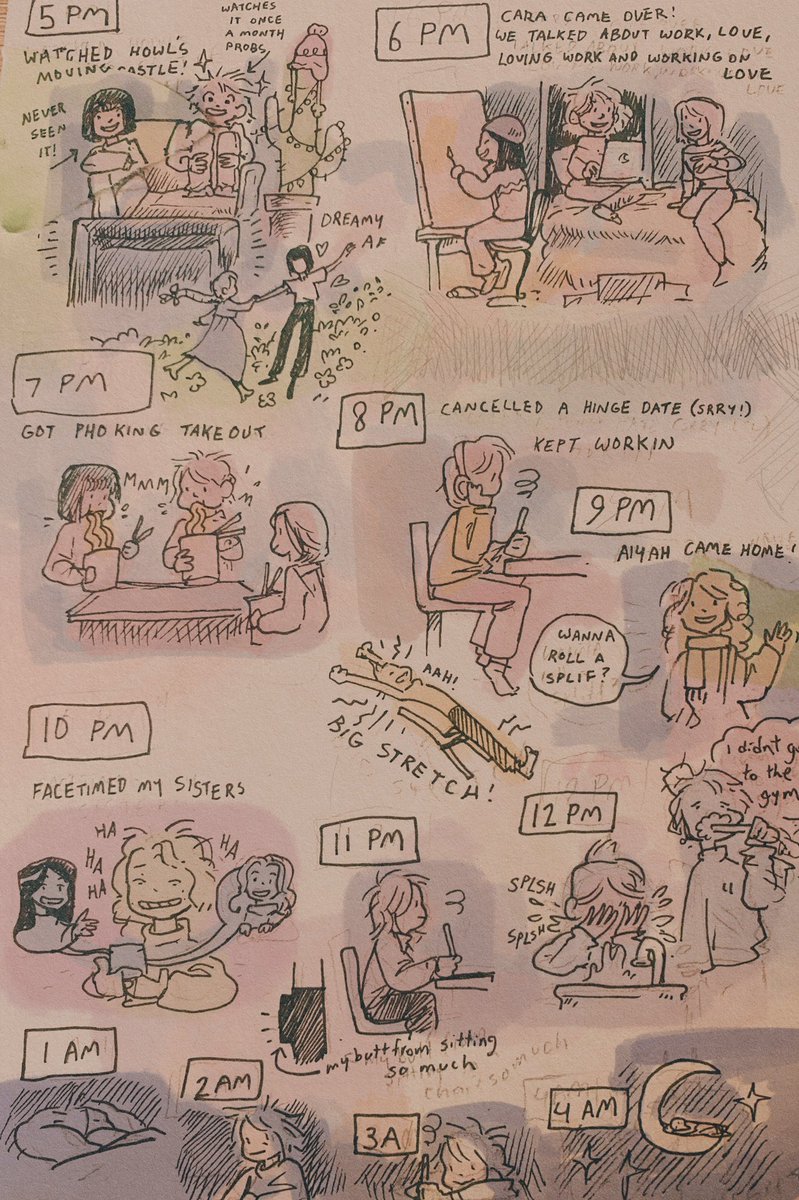 5 PM
WATCHED HOWL'S
MOVING CASTLE!
WATCHES
IT ONCE
A MONTH
PROBS
NEVER
SEEN
IT!
DREAMY
AF
6 PM
CARA CAME OVER!
WE TALKED ABOUT WORK, LOVE,
LOVING WORK AND WORKING ON
LOVE
7 PM
GOT PHO KING TAKEOUT
MMM
8 PM
CANCELLED A HINGE DATE (SRRY!)
KEPT WORKIN
AAH!
BIG STRETCH!
9 PM
AIYAH CAME HOME!
WANNA
ROLL A
SPLIF?
10 PM
FACETIMED MY SISTERS
HA
HA
HA
HA
11 PM
my butt from sitting
so much
12 PM
SPLSH
SPLSH
I didn't g
to the
gym
1 AM
2 AM
3 A
4 AM